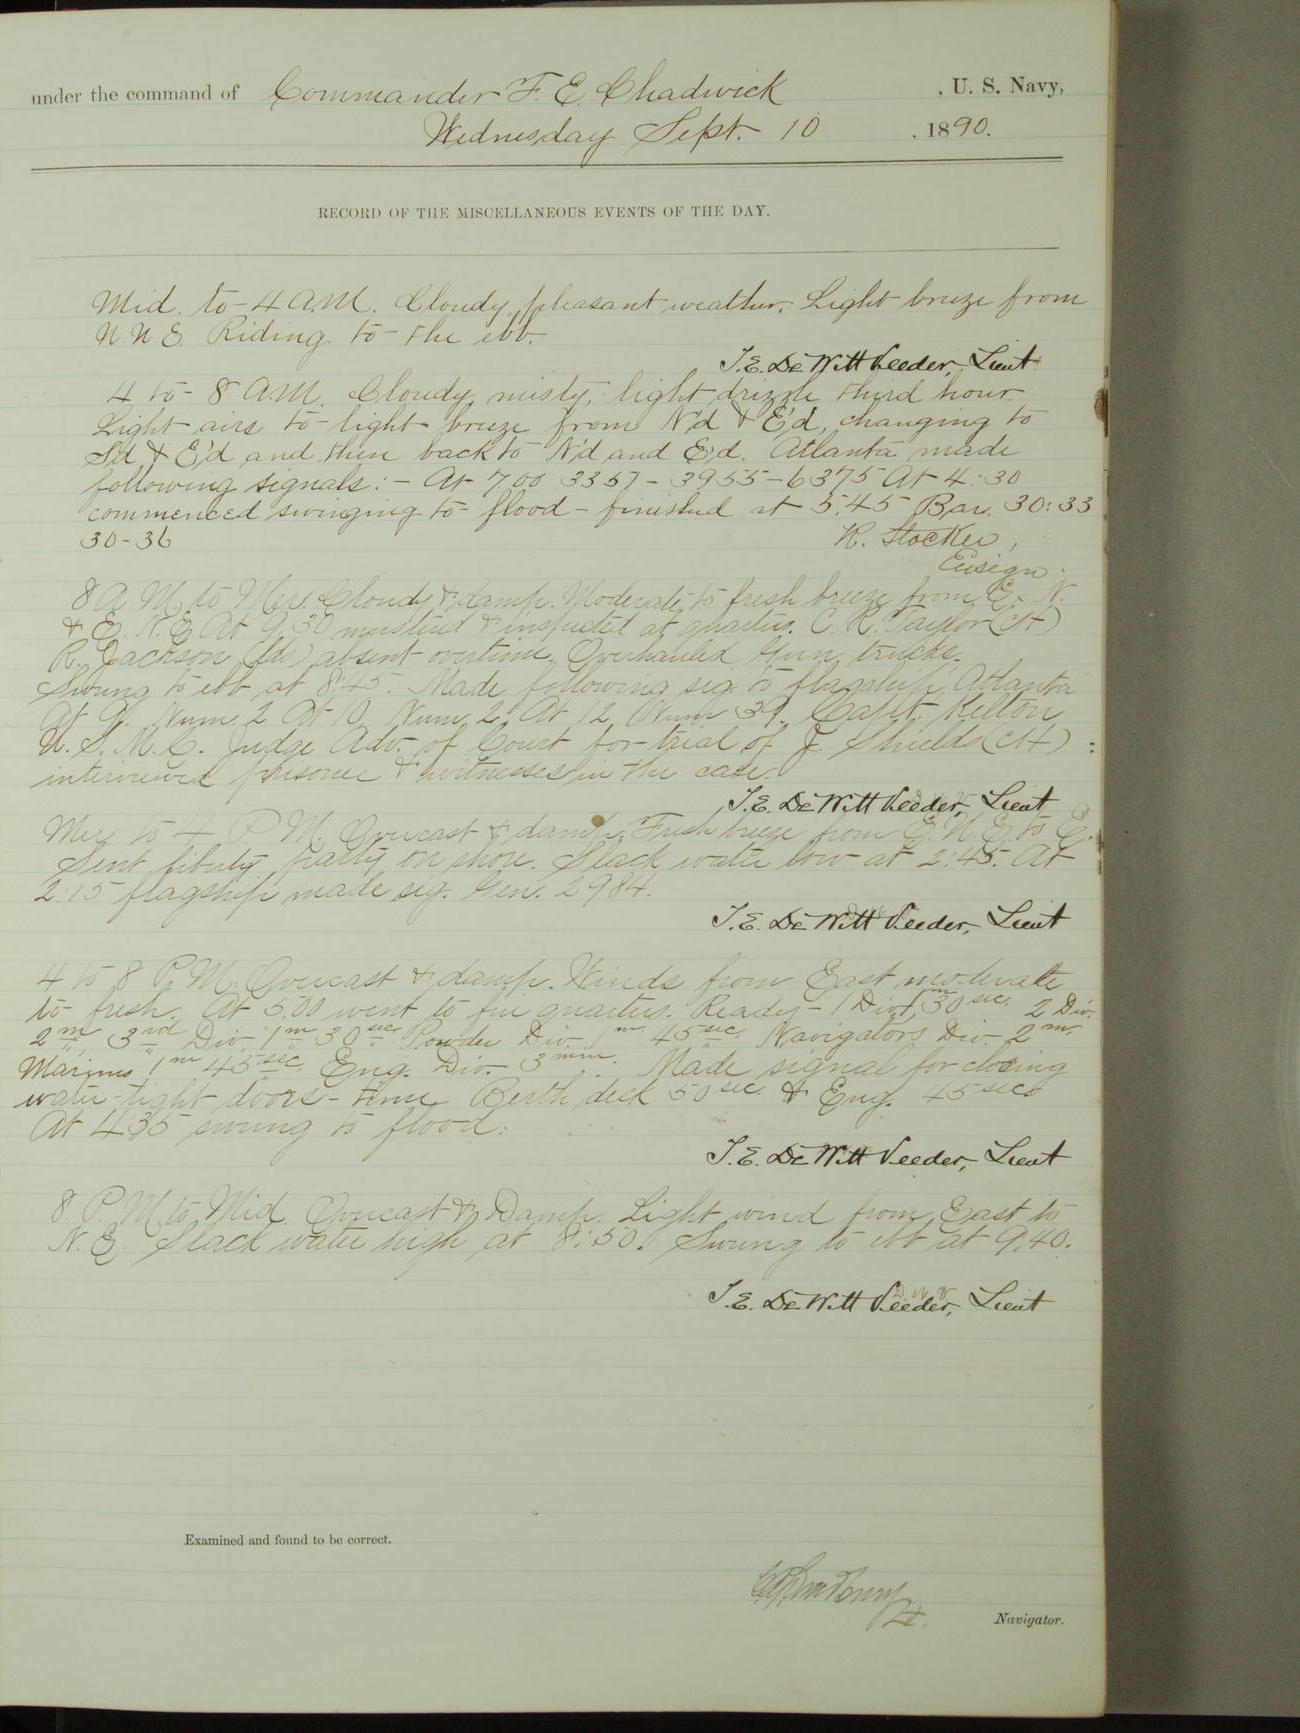 under the command of Commander F. E. Chadwick , U. S. Navy,
Wednesday Sept. 10 , 1890.
RECORD OF THE MISCELLANEOUS EVENTS OF THE DAY.
Mid. to 4 A.M. Cloudy, pleasant weather. Light breeze from
N.N.E. Riding to the ebb.
T. E. DeWitt Veeder, Lieut
4 to 8 A.M. Cloudy, misty, light drizzle third hour.
Light airs to light breeze from N'd & E'd, changing to
S'd & E'd and then back to N'd and E'd. Atlanta made
following signals:- At 7.00 3357 - 3955 - 6375 At 4:30
commenced swinging to flood - finished at 5.45 Bar. 30:33
30-36
R. Stocker,
Ensign.
8 A.M. to Mer. Cloudy & damp. Moderate to fresh breeze from E. N.
& E. N. E. At 9.30 mustered & inspected at quarters. C. R. Taylor (cH)
R. Jackson absent overtime. Overhauled Gun trucks.
Swung to ebb at 8:45. Made following sig. to flagship Atlanta
At 9. Num. 2 At 10 Num. 2. At 12 Num 39. Capt. Kelton
U. S. M. C. Judge Adv. of Court for trial of J. Shields (cH)
interviewed prisoner & witnesses in the case.
T. E. DeWitt Veeder, Lieut
Mer. to 4 P.M. Overcast & damp. Fresh breeze from E. N. E. to E.
Sent liberty party on shore. Slack water low at 2:45. At
2:15 flagship made sig. Gen. 2984.
T. E. DeWitt Veeder, Lieut
4 to 8 P.M. Overcast & damp. Winds from East moderate
to fresh. At 5.00 went to fire quarters. Ready - 1 Div. 1m 30 sec. 2 Div.
2m 3rd Div. 1m 30 sec Powder Div. 1m. 45 sec. Navigators Div. 2m.
Marines 1m 45 sec. Eng. Div. 3 min. Made signal for closing
water-tight doors - time Berth deck 50 sec. & Eng. 45 secs
At 4:35 swung to flood.
T. E. DeWitt Veeder, Lieut
8 P.M. to Mid. Overcast & Damp. Light wind from East to
N. E. Slack water high at 8:50. Swung to ebb at 9.40.
T. E. DeWitt Veeder, Lieut
Examined and found to be correct.
Lt.
Navigator.